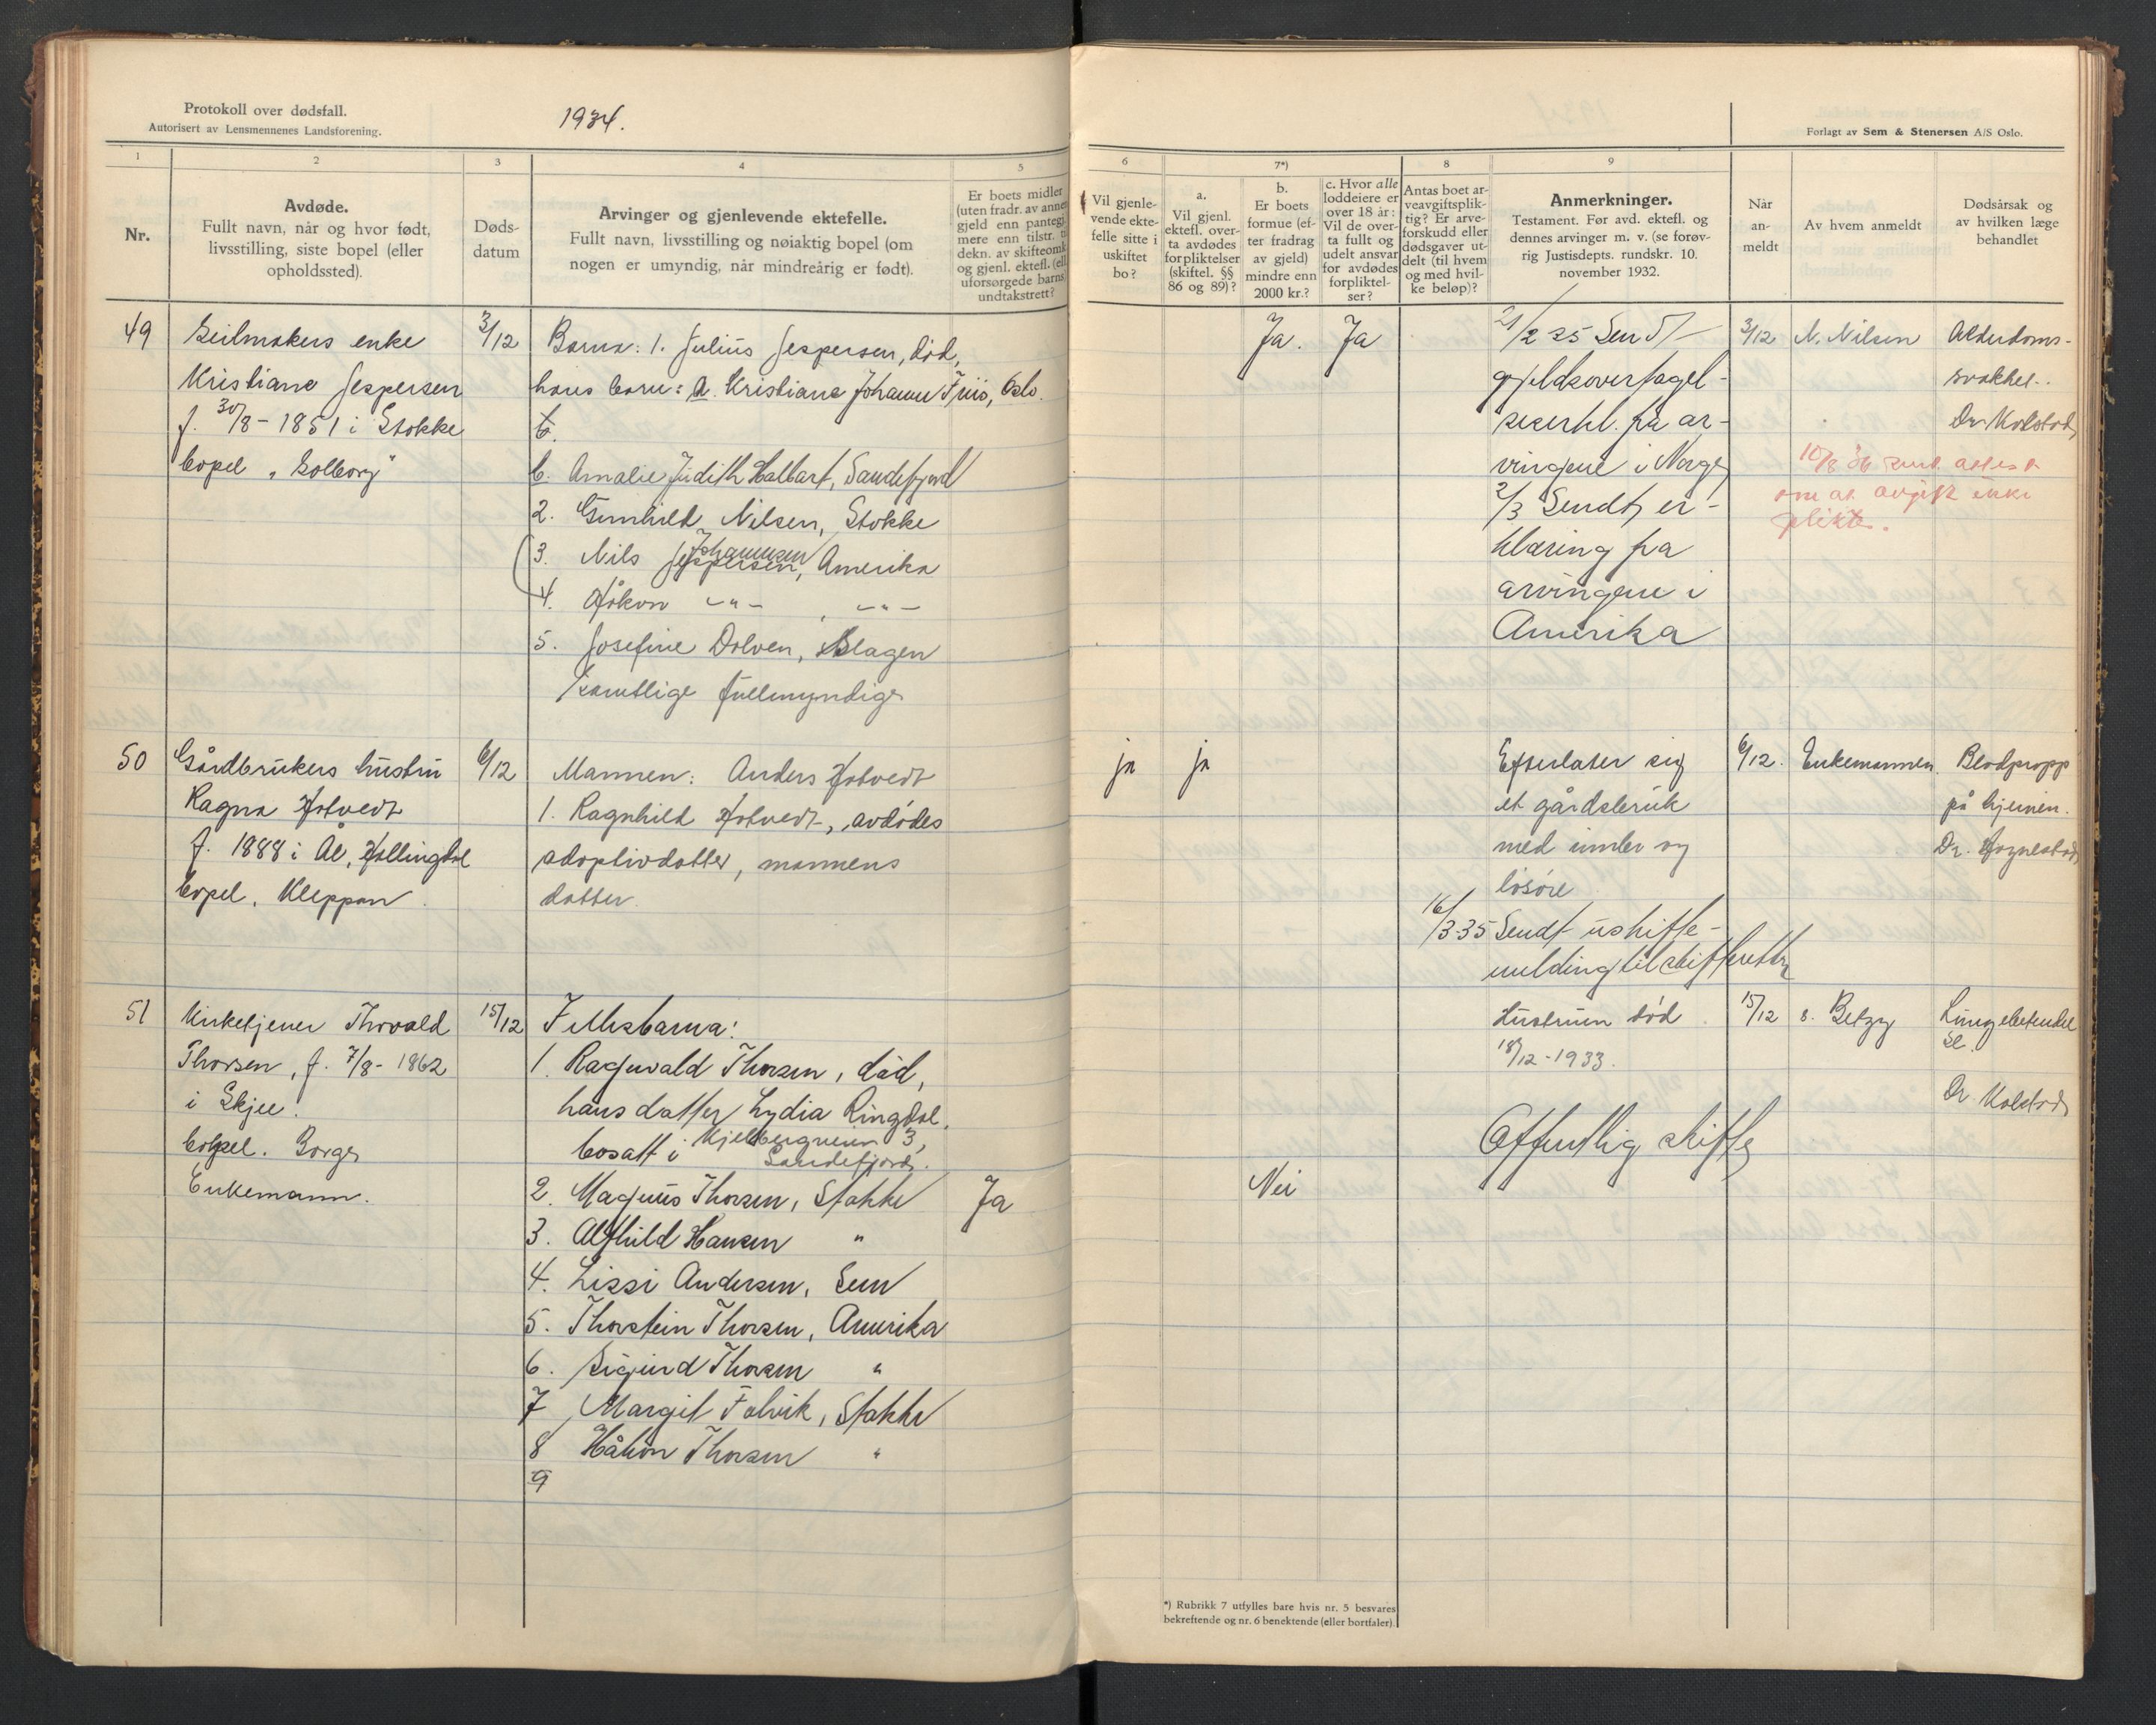 Protokoll over dødsfall.
Autorisert av Lensmennenes Landsforening.
1934.
Forlagt av Sem & Stenersen A/S Oslo.
1
2
3
4
5
6
7*)
8
9
Nr.
Avdøde.
Fullt navn, når og hvor født,
livsstilling, siste bopel (eller
opholdssted).
Døds-
datum
Arvinger og gjenlevende ektefelle.
Fullt navn, livsstilling og nøiaktig bopel (om
nogen er umyndig, når mindreårig er født).
Er boets midler
(uten fradr. av annen
gjeld enn pantegj.
mere enn tilstr. ti
dekn. av skifteomk.
og gjenl. ektef. (ell
uforsørgede barns)
undtakstrett?
Vil gjenle-
vende ekte-
felle sitte i
uskiftet
bo?
a.
Vil gjenl.
ektefl. over-
ta avdødes
forpliktelser
(skiftel. §§
86 og 89)?
b.
Er boets
formue (ef-
ter fradrag
av gjeld)
mindre enn
2000 kr.?
c. Hvor alle
loddeiere er
over 18 år:
Vil de over-
ta fullt og
udelt ansvar
for avdødes
forpliktel-
ser?
Antas boet ar-
veavgiftsplik-
tig? Er arve-
forskudd eller
dødsgaver ut-
delt (til hvem
og med hvil-
ke beløp)?
Anmerkninger.
Testament. Før avd. ektefl. og
dennes arvinger m. v. (se forøv-
rig Justisdepts. rundskr. 10.
november 1932.
Når
an-
meldt
Av hvem anmeldt
Dødsårsak og
av hvilken læge
behandlet
49
Seilmakers enke
Kristiane Jespersen
f. 30/8 - 1851 i Stokke
bopel "Solborg"
3/12
Barna: 1. Julius Jespersen, død,
hans barn: a. Kristiane Johanne Friis, Oslo.
b.
b. Amalie Judith Halbart, Sandefjord
2. Gunhild Nilsen, Stokke
Johannesen
3. Nils Jespersen, Amerika
4. Håkon -"- , -"-
5. Josefine Dolven, Slagen
samtlige fullmyndige
Ja. Ja
21/2 35 Sendt
gjeldsovertagel-
seserkl. fra ar-
vingene i Norge
2/3 Sendt er-
klæring fra
arvingene i
Amerika
3/12
N. Nilsen
Alderdoms-
svakhet.
Dr. Kolstad
10/8 36 send attest
om at avgift ikke
plikter.
50
Gårdbrukers hustru
Ragna Hotvedt
f. 1888 i Ål, Hallingdal
bopel. Kleppan
6/12
Mannen: Anders Hotvedt
1. Ragnhild Hotvedt, avdødes
adoptivdatter, mannens
datter.
ja ja
Efterlater sig
et gårdsbruk
med innbo og
løsøre
16/3-35 Sendt uskifte-
melding til skifteretten
6/12.
Enkemannen.
Blodpropp
på hjernen.
Dr. Hognestad
51
Kirketjener Thorvald
Thorsen, f. 7/8 - 1862
i Skjee.
bopel. Borge
Enkemann.
15/12
Fellesbarna:
1. Ragnvald Thorsen, død,
hans datter Lydia Ringdal,
bosatt i Kjelbergveien 3,
Sandefjord.
2. Magnus Thorsen, Stokke
3. Alfhild Hansen "
4. Lissi Andersen, Sem
5. Thorstein Thorsen, Amerika
6. Sigurd Thorsen "
7 Margit Falvik, Stokke
8 Håkon Thorsen "
9
Ja
Nei
Hustruen død
18/12 - 1933.
Offentlig skifte
15/12
s. Betzy
Lungebetendel
se.
Dr. Kolstad
*) Rubrikk 7 utfylles bare hvis nr. 5 besvares
bekreftende og nr. 6 benektende (eller bortfaler).